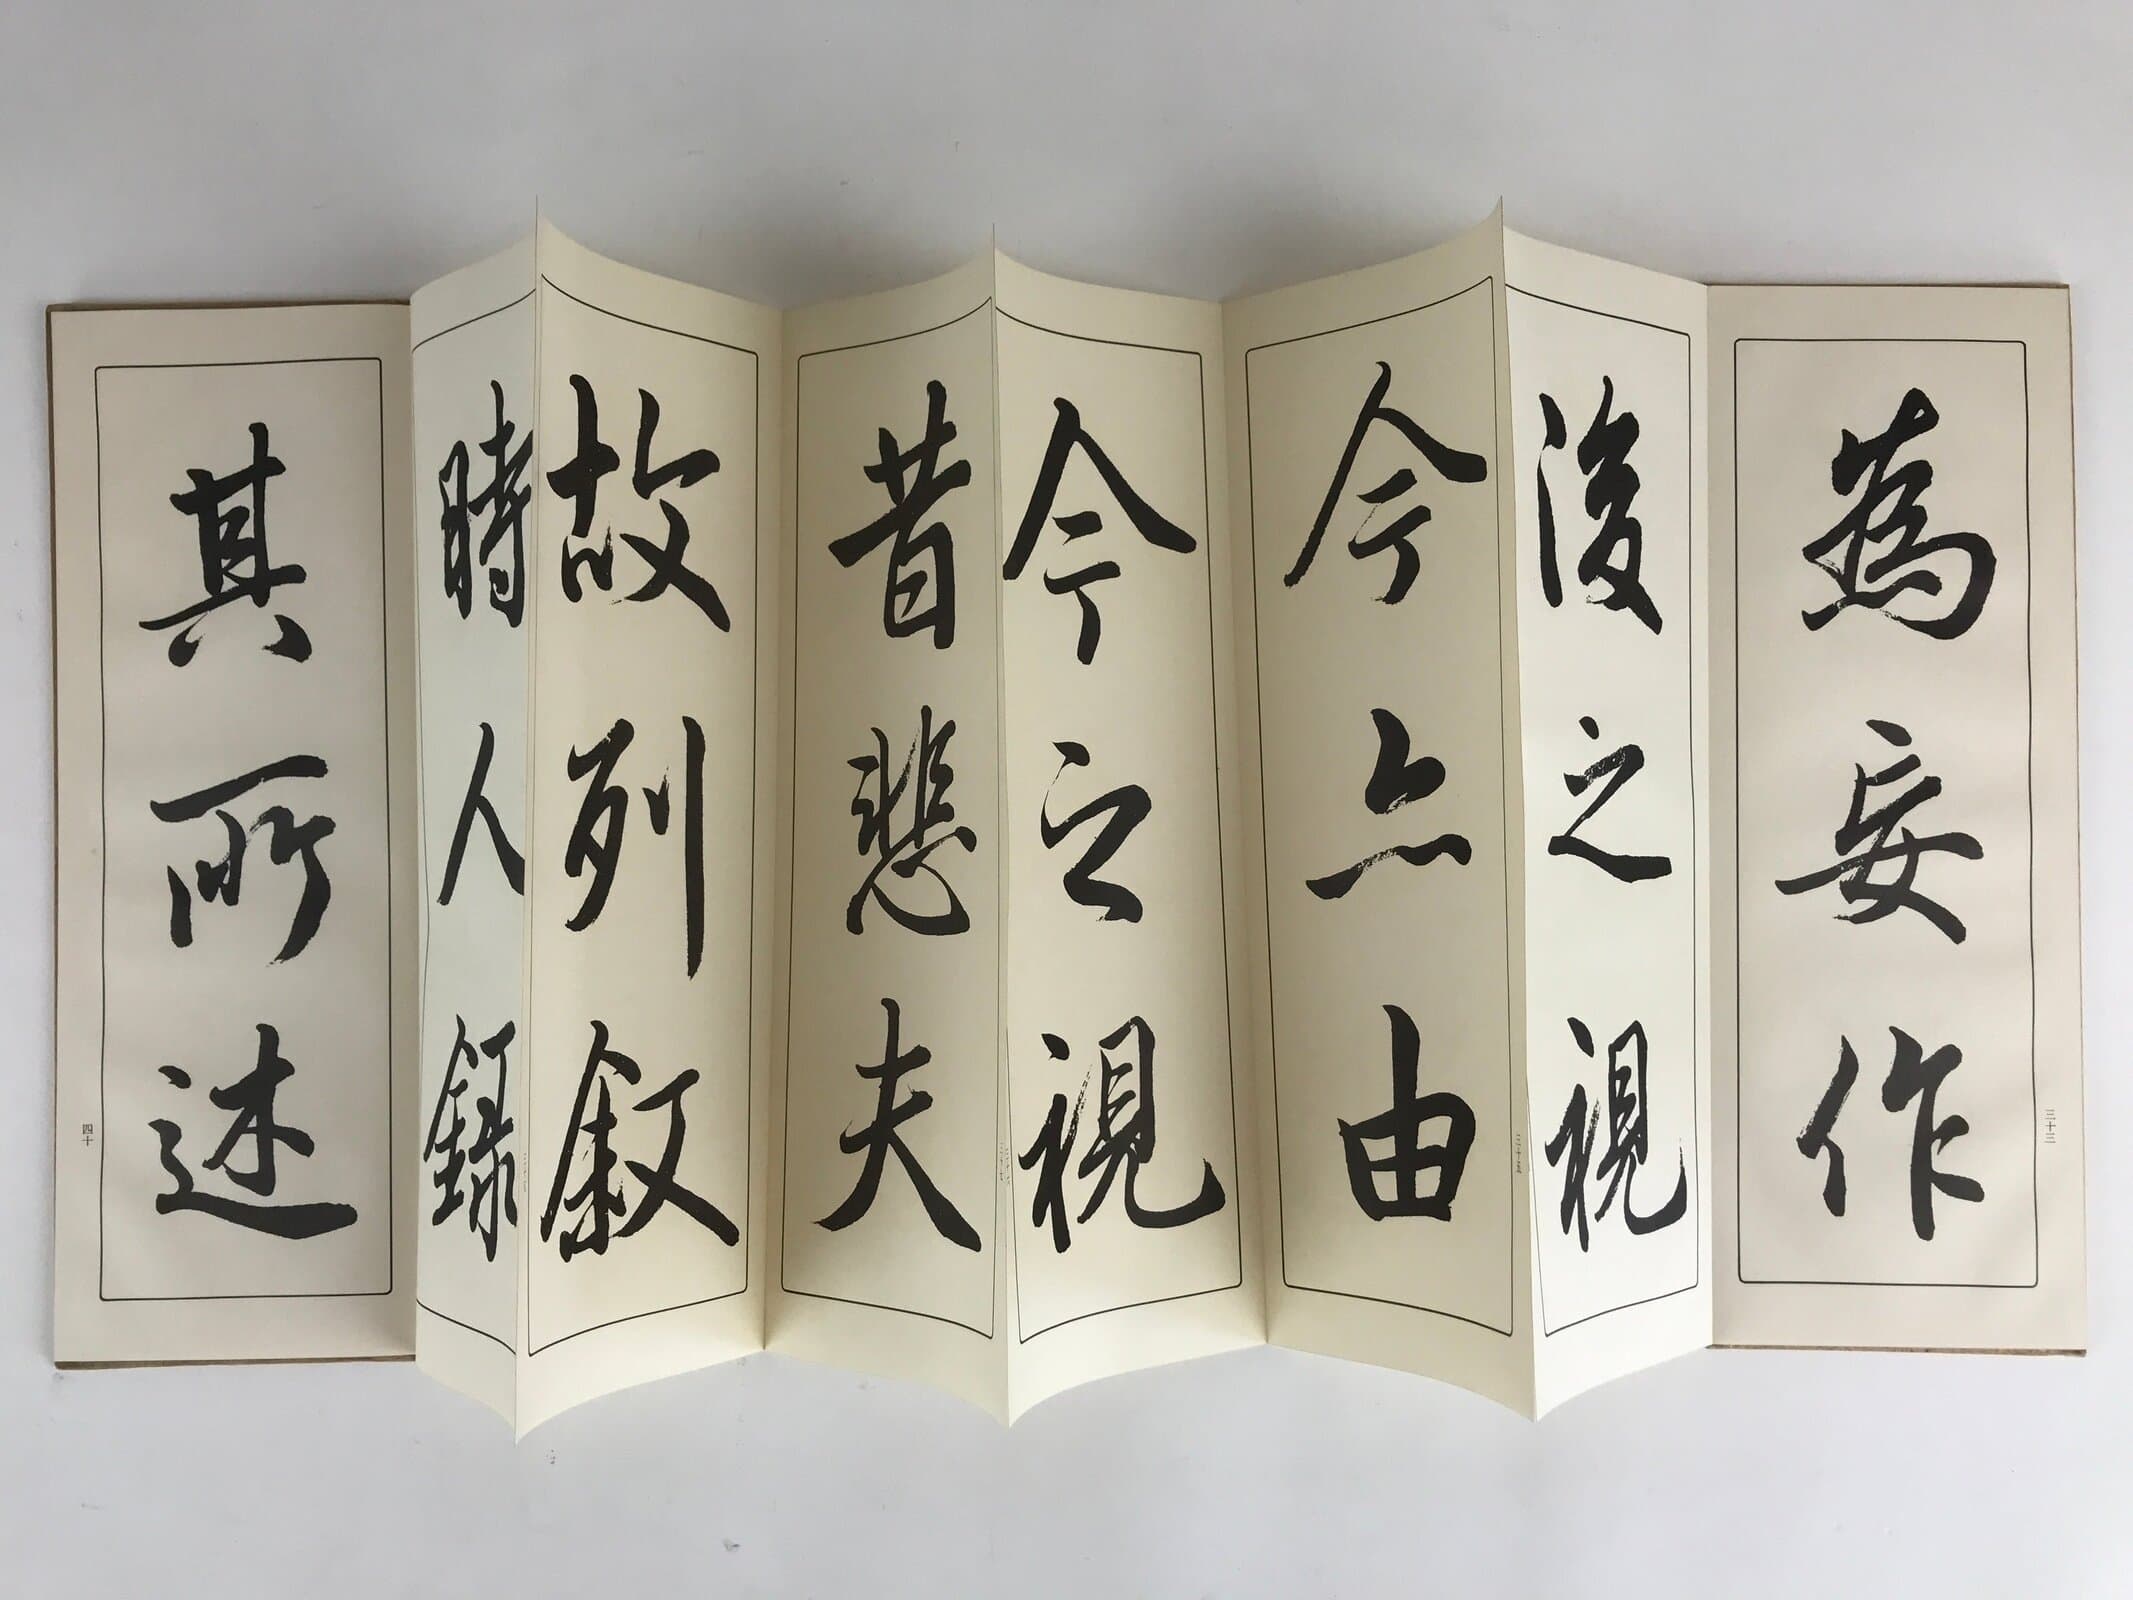 為妄作
三十三
後之視
今亦由
今之視
昔悲夫
故列叙
時人録
其所述
四十